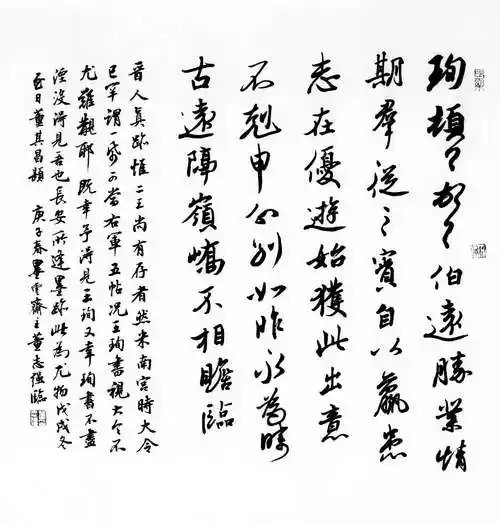 珣頓〻首〻伯遠勝業情
期羣從之寶自以羸患
志在優遊始獲此出意
不剋申分別如昨永為疇
古遠隔嶺嶠不相瞻臨
晉人真跡惟二王尚有存者然米南宮時大令
已罕謂一紙可當右軍五帖況王珣書視大令不
尤難覯耶既幸予得見王珣又幸珣書不盡
湮沒得見吾也長安所逢墨跡此為尤物戊戌冬
至日董其昌題 庚子春墨雲齋主董志強臨